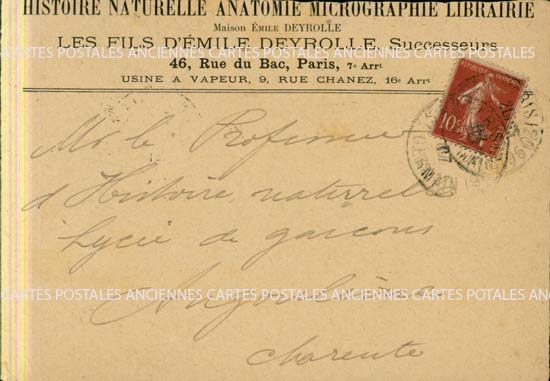 HISTOIRE NATURELLE ANATOMIE MICROGRAPHIE LIBRAIRIE
Maison ÉMILE DEYROLLE
LES FILS D'ÉMILE DEYROLLE, Successeurs
46, Rue du Bac, Paris, 7e Arrt
USINE A VAPEUR, 9, RUE CHANEZ, 16e Arrt
10c
Mr le Professeur
d'Histoire naturelle
Lycée de garçons
CARTES POSTALES ANCIENNES CARTES POSTALES ANCIENNES CARTES POTALES ANCIENNES
Angoulême
Charente